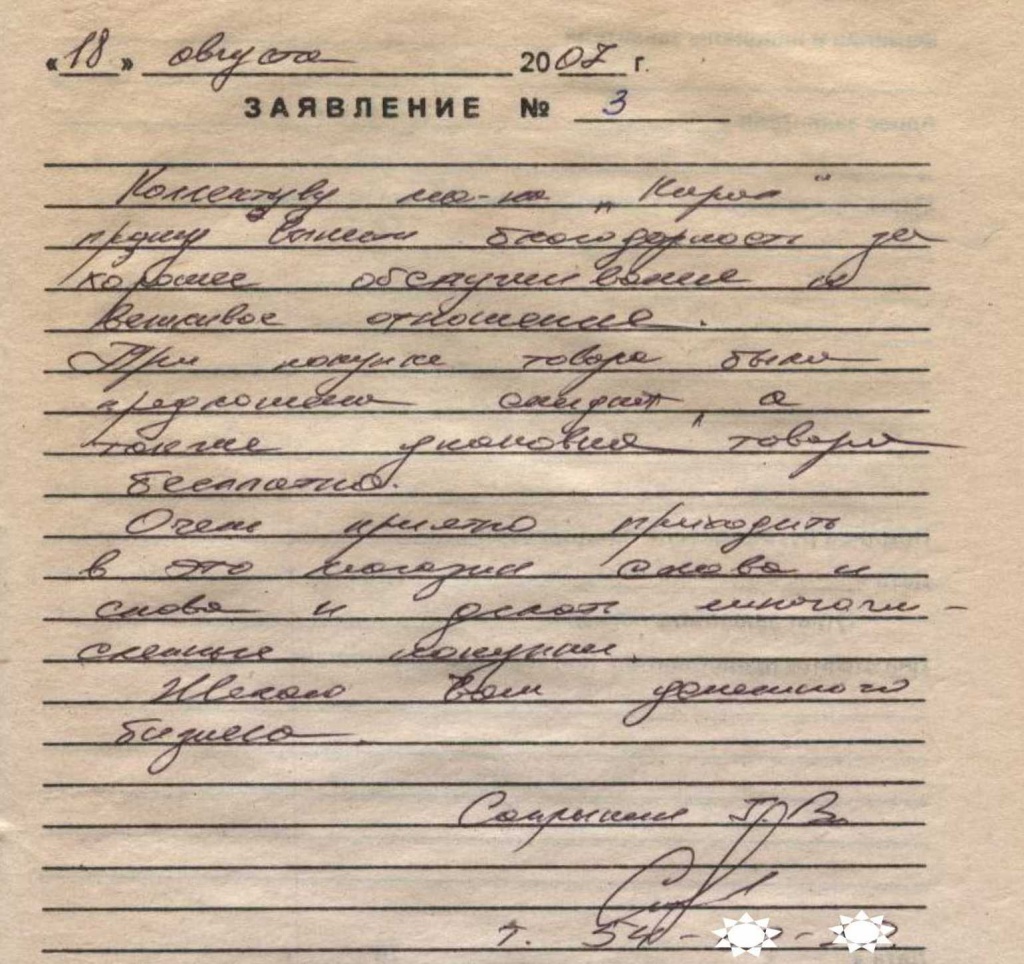 «18» августа 2007 г.
ЗАЯВЛЕНИЕ № 3
Коллективу ма-на „
прошу вынести благодарность за
хорошее обслуживание и
вежливое отношение.
При покупке товара была
предложена скидка, а
также упаковка товара
бесплатно.
Очень приятно приходить
в это магазин снова и
снова и делать многочи-
сленные покупки.
Желаю Вам денежного
бизнеса.
В.
т. 54 -